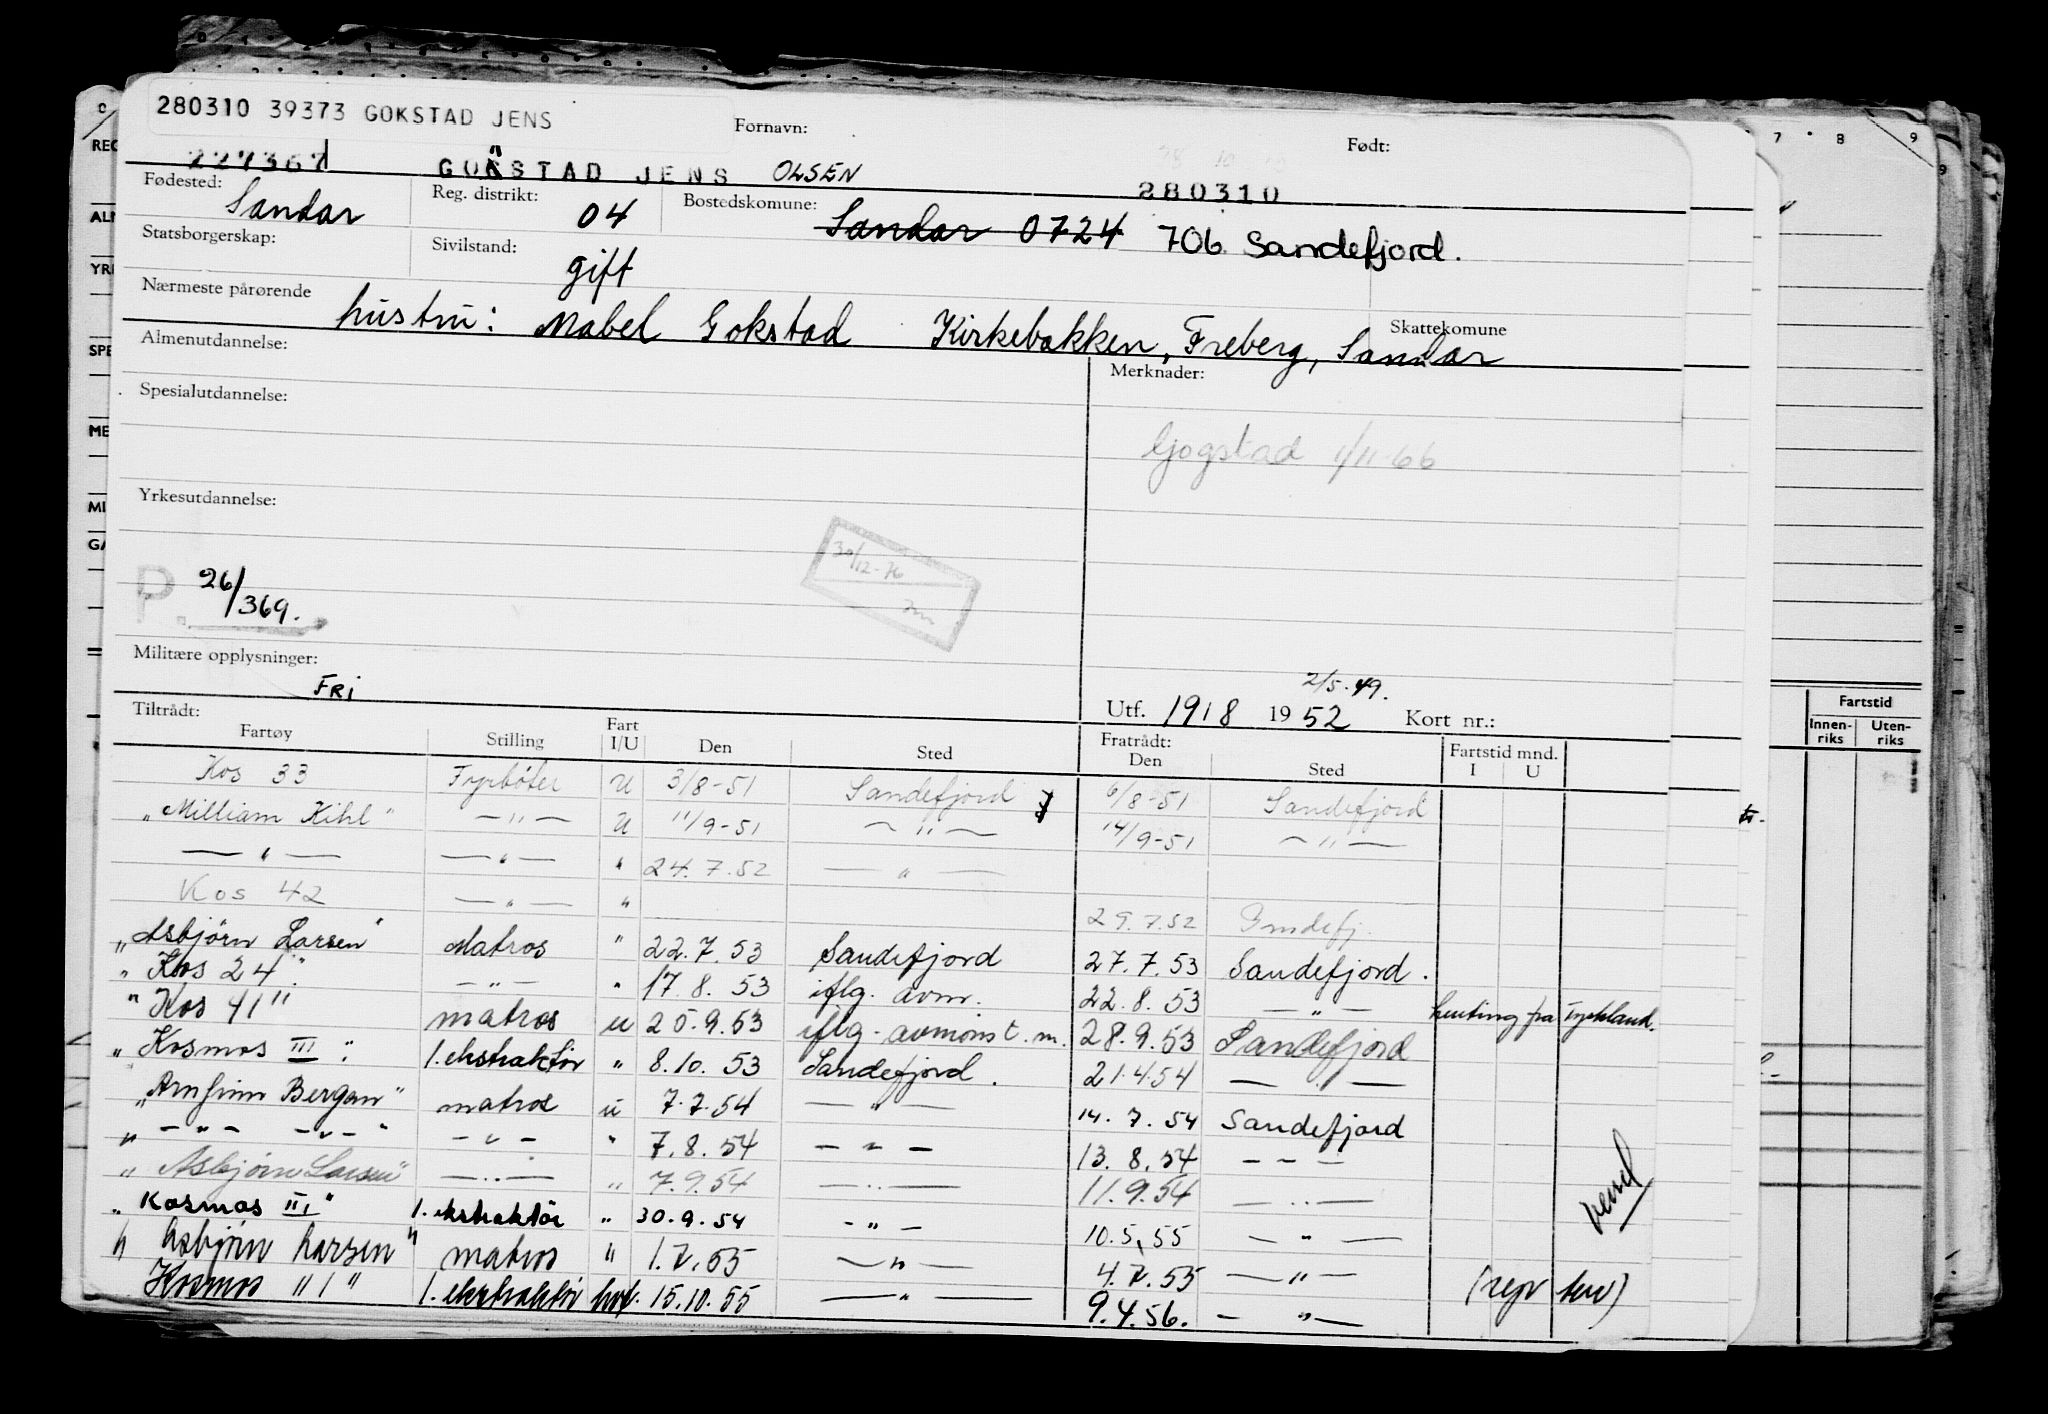 280310 39373 GOKSTAD JENS
Fornavn: Født:
227367 GOKSTAD JENS OLSEN 280310
Fødested: Sandar Reg. distrikt: 04 Bostedskomune: Sandar 0724 706 Sandefjord.
Statsborgerskap: Sivilstand: gift
Nærmeste pårørende hustru: Mabel Gokstad Kirkebakken, Freberg, Sandar Skattekomune
Almenutdannelse: Merknader:
Spesialutdannelse:
Gjogstad 1/11-66
Yrkesutdannelse:
30/12-76
P. 26/369.
Militære opplysninger: FRI
2/5.49.
Utf. 1918 1952 Kort nr.:
Tiltrådt: Fratrådt: Fartstid mnd.
Fartøy Stilling Fart I/U Den Sted Den Sted I U
Kos 33 Fyrbøter U 3/8-51 Sandefjord 6/8-51 Sandefjord
"William Kihl" —"— U 11/9-51 —"— 14/9-51 —"—
—"— —"— " 24.7.52 —"—
Kos 42 —"— " 29.7.52
"Asbjörn Larsen" Matros " 22.7.53 Sandefjord 27.7.53 Sandefjord.
"Kos 24" —"— " 17.8.53 iflg. avm. 22.8.53 —"— henting fra Tyskland.
"Kos 41" matros u 25.9.53 iflg. avmønst. m. 28.9.53 Sandefjord
"Kosmos III" 1. ekstraktör " 8.10.53 Sandefjord. 21.4.54 —"—
"Arnfinn Bergan" matros u 7.7.54 —"— 14.7.54 Sandefjord
" —"— —"— " —"— " 7.8.54 —"— 13.8.54 — — —
"Asbjørn Larsen" —"— " 7.9.54 —"— 11.9.54 —"—
"Kosmos III" 1. ekstraktör " 30.9.54 —"— 10.5.55 —"—
"Asbjörn Larsen" matros " 1.7.55 —"— 4.7.55 —"—
Kosmos "1" 1. ekstraktör 15.10.55 —"— 9.4.56. —"—
vend
Fartstid
Innen-riks Uten-riks
7 8 9